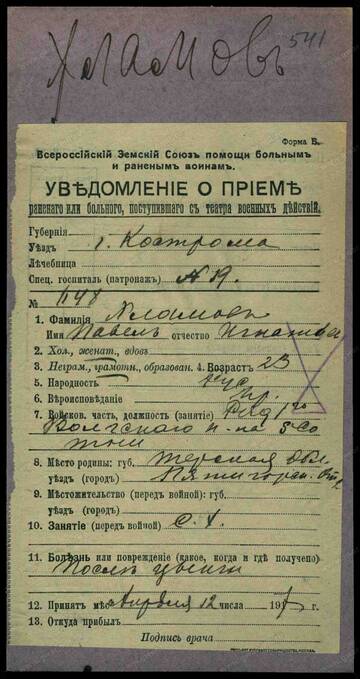 Хламовъ 541
Форма Б.
Всероссійскій Земскій Союзъ помощи больнымъ
и раненымъ воинамъ.
УВѢДОМЛЕНІЕ О ПРІЕМѢ
раненаго или больного, поступившаго съ театра военныхъ дѣйствій.
Губернія
Уѣздъ г. Кострома
Лѣчебница
Спец. госпиталь (патронажъ) № 19.
№
1. Фамилія Хламовъ
Имя Павелъ отчество Игнатьев
2. Хол., женат., вдовъ
3. Неграм., грамотн., образован. 4. Возрастъ 23
5. Народность рус
6. Вѣроисповѣданіе пр.
7. Войсков. часть, должность (занятіе) Ряд 1го
Волгскаго п-ка 5 со
тни
8. Мѣсто родины: губ. Терская обл
уѣздъ (городъ) Пятигорск. отд
9. Мѣстожительство (передъ войной): губ.
уѣздъ (городъ)
10. Занятіе (передъ войной) с. х.
11. Болѣзнь или поврежденіе (какое, когда и гдѣ получено)
Послѣ цынги
12. Принятъ мѣс. Апрѣля 12 числа 1917 г.
13. Откуда прибылъ
Подпись врача